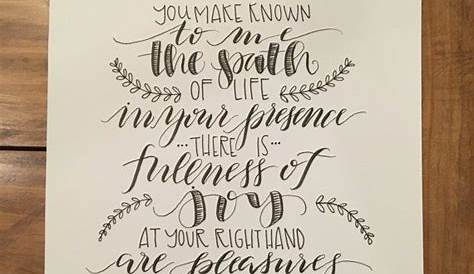 YOU MAKE KNOWN
to me
the path
OF LIFE
in your presence
...THERE IS...
fullness of
joy
AT YOUR RIGHT HAND
are pleasures